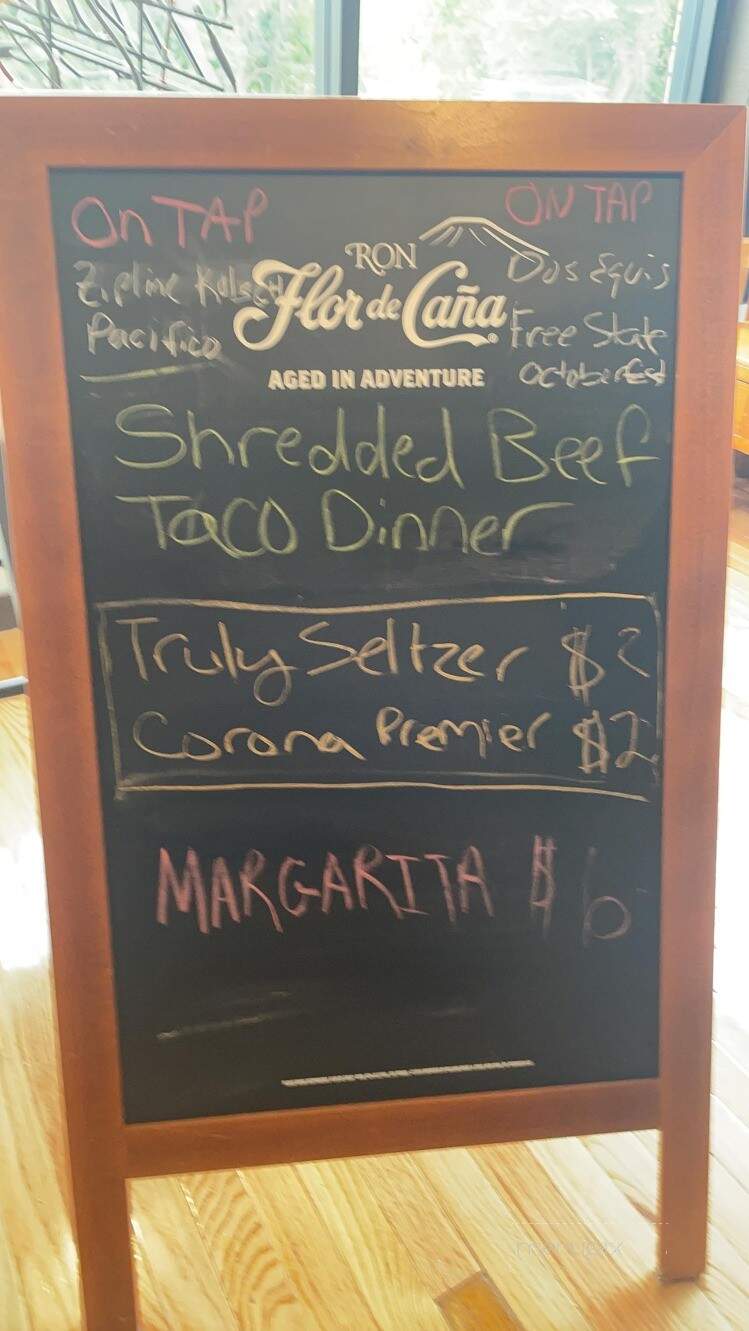 On TAP
ON TAP
Zipline Kolsch
Pacifico
RON
Flor de Caña
AGED IN ADVENTURE
Dos Equis
Free State
Octoberfest
Shredded Beef
Taco Dinner
Truly Seltzer $2
Corona Premier $2
MARGARITA $6